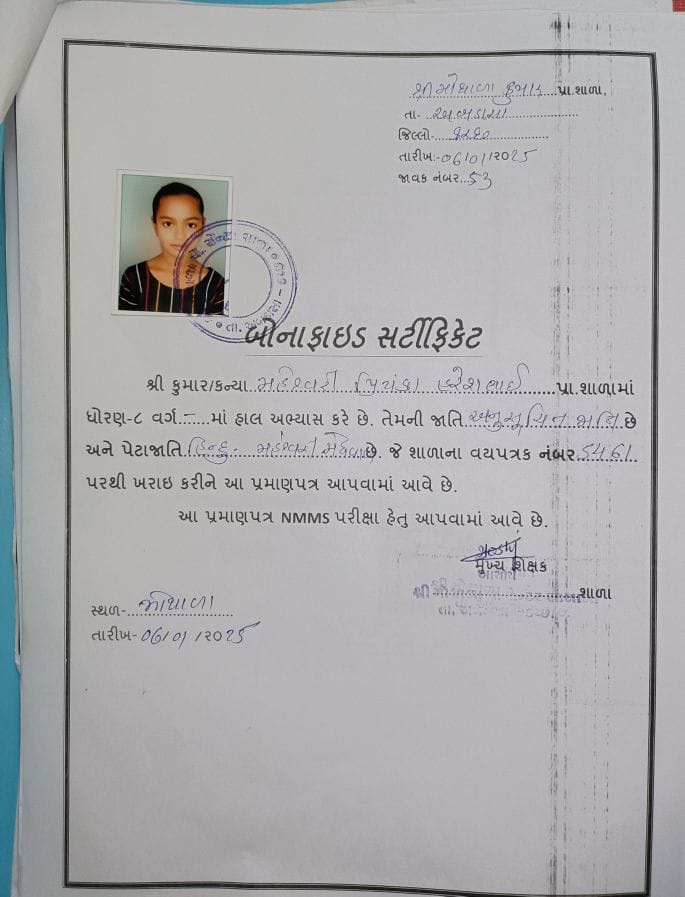 શ્રી મોથાળા કુમાર પ્રા.શાળા,
તા- અબડાસા
જિલ્લો- કચ્છ
તારીખ:-06/01/2025
જાવક નંબર...53
બોનાફાઇડ સર્ટીફિકેટ
શ્રી કુમાર/કન્યા મહેશ્વરી પ્રિયંકા હરેશભાઈ પ્રા.શાળામાં
ધોરણ-૮ વર્ગ..-... માં હાલ અભ્યાસ કરે છે. તેમની જાતિ અનુસૂચિત જાતિ છે
અને પેટાજાતિ હિન્દુ- મહેશ્વરી છે. જે શાળાના વયપત્રક નંબર 5461
પરથી ખરાઇ કરીને આ પ્રમાણપત્ર આપવામાં આવે છે.
આ પ્રમાણપત્ર NMMS પરીક્ષા હેતુ આપવામાં આવે છે.
મુખ્ય શિક્ષક
આચાર્ય
શાળા
સ્થળ- મોથાળા
તારીખ- 06/01/2025